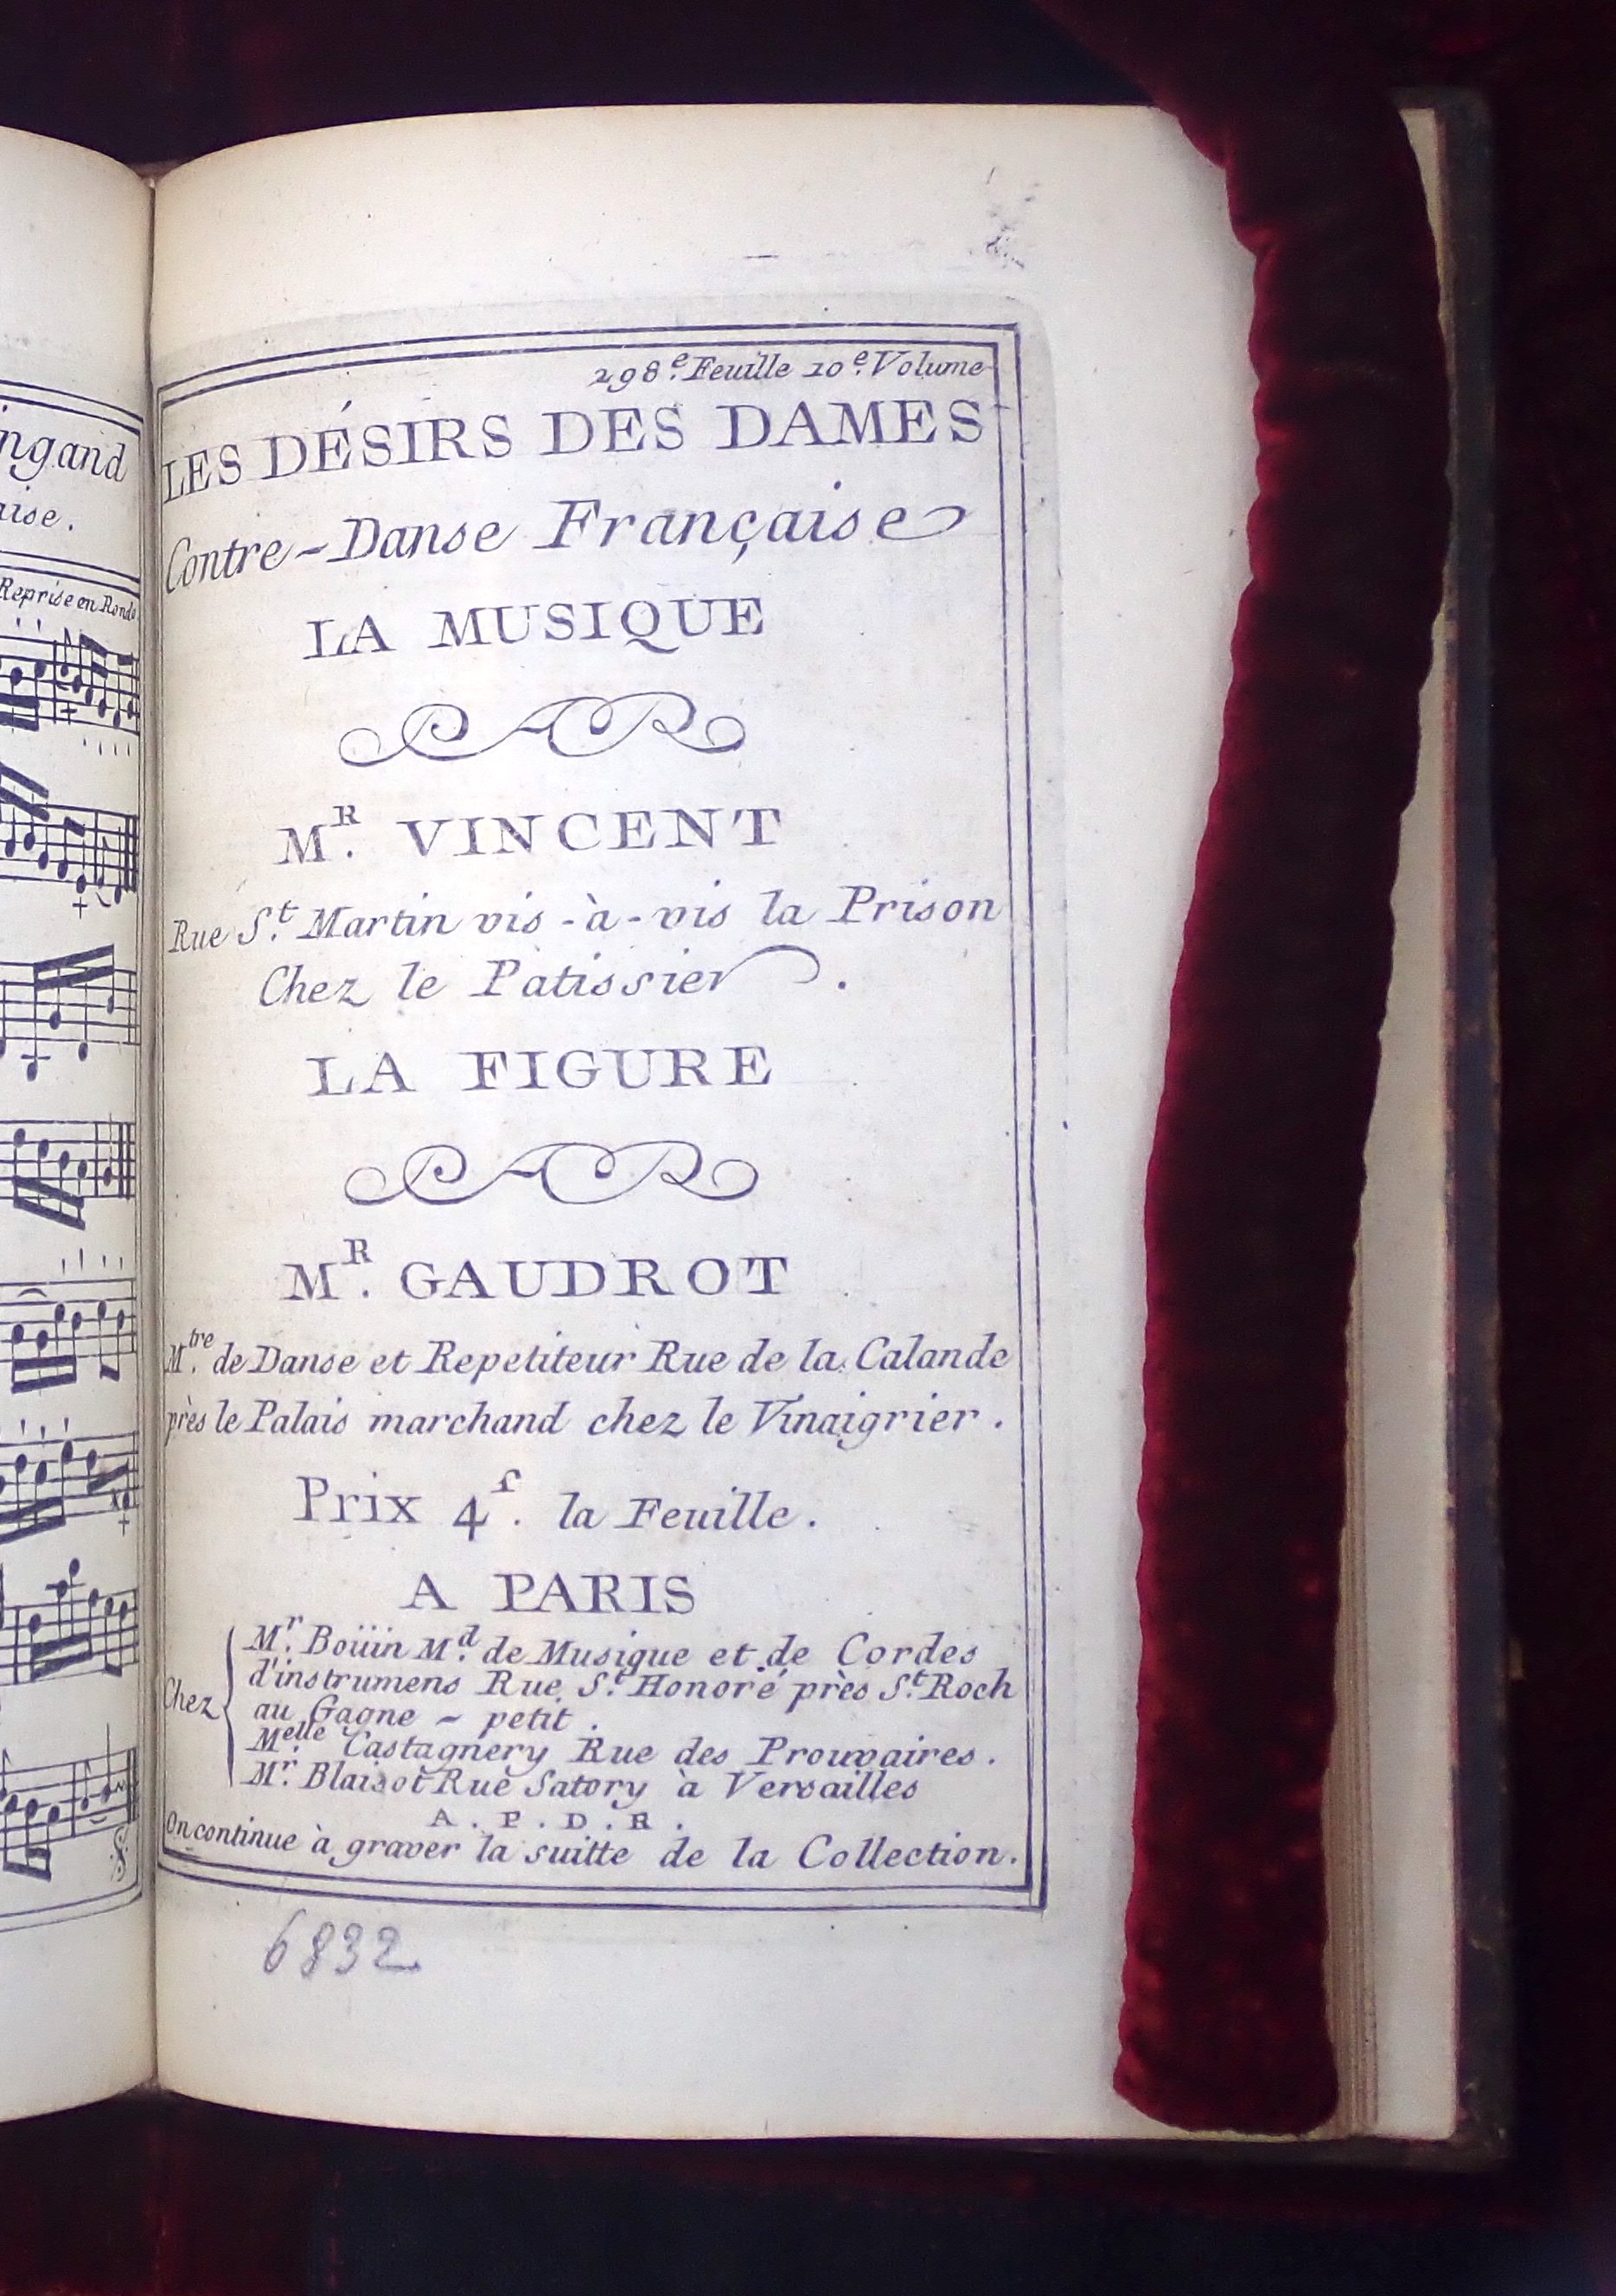 ingand
aise.
Reprise en Ronde
298e. Feuille 10e. Volume
LES DÉSIRS DES DAMES
Contre-Danse Française
LA MUSIQUE
MR. VINCENT
Rue St. Martin vis-à-vis la Prison
Chez le Patissier.
LA FIGURE
MR. GAUDROT
Mtre. de Danse et Repetiteur Rue de la Calande
près le Palais marchand chez le Vinaigrier.
Prix 4s. la Feuille.
A PARIS
Chez
Mr. Boüin Md. de Musique et de Cordes
d'instrumens Rue St. Honoré près St. Roch
au Gagne - petit.
Melle. Castagnery Rue des Prouvaires.
Mr. Blaisot Rue Satory à Versailles
A.P.D.R.
On continue à graver la suitte de la Collection.
6832